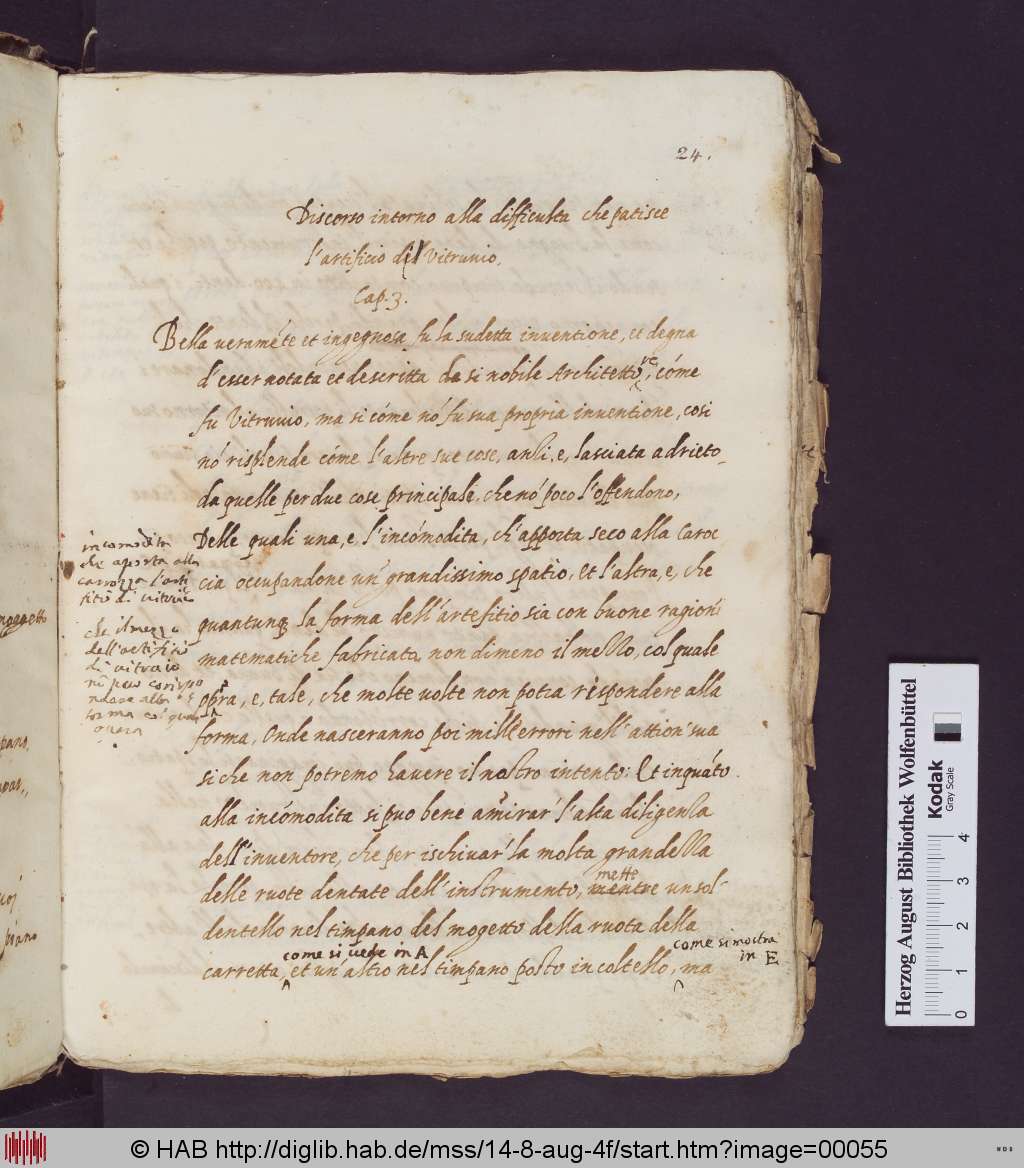 24.
Discorso intorno alla difficulta che patisce
l'artificio di Vitruuio.
Cap. 3.
Bella veraméte et ingegnosa fu la sudetta inuentione, et degna
d'esser notata et descritta da si nobile Architettore, cóme
fu Vitruuio, ma si cóme nó fu sua propria inuentione, cosi
nó risplende cóme l'altre sue cose, anzi, e, lasciata adrieto
da quelle per due cose principali, che nó poco l'offendono,
Delle quali una, e, l'incómodita, ch'apporta seco alla Caroc
cia occupandone un grandissimo spatio, et l'altra, e, che
quantunq la forma dell'artefitio sia con buone ragioni
matematiche fabricata, non dimeno il mezzo, col quale
opra, e, tale, che molte uolte non potra rispondere alla
forma, Onde nasceranno poi mille errori nell'attion sua
siche non potremo hauere il nostro intento: Et inquáto
alla incómodita si puo bene amirar l'alta diligenza
dell'inuentore, che per ischiuar la molta grandezza
delle ruote dentate dell'instrumento, mette un sol
dentello nel timpano del mogetto della ruota della
come si uede in A
come si mostra
in E
carretta, et un altro nel timpano posto in coltello, ma
incomodita
che aporta alla
carrozza l'arti
fitio di uitruuio
che il mezzo
dell'artifitio
di uitruuio
nó puo corispo
ndere alla
forma col quale
opera
moggetto
Herzog August Bibliothek Wolfenbüttel
Kodak
Gray Scale
0 1 2 3 4
© HAB http://diglib.hab.de/mss/14-8-aug-4f/start.htm?image=00055